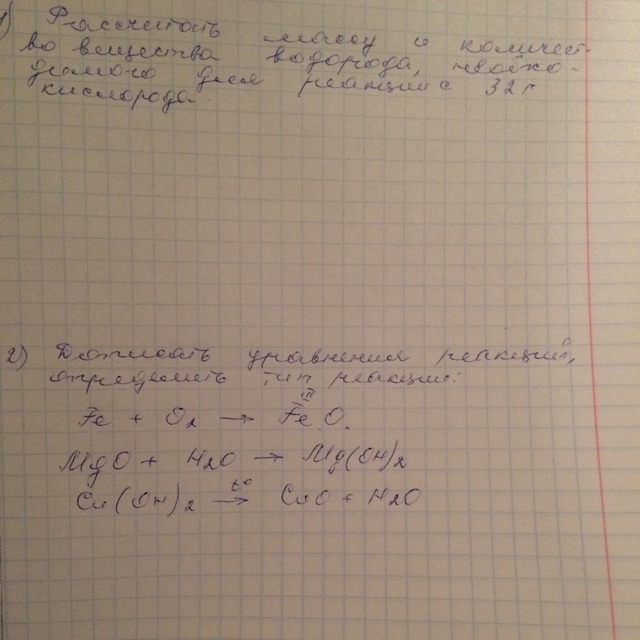 1) Рассчитать массу и количест-
во вещества водорода, необхо-
димого для реакции с 32 г
кислорода.
2) Дописать уравнения реакций,
определить тип реакции:
III
Fe + O₂ → Fe O.
MgO + H₂O → Mg(OH)₂
Cu(OH)₂ t° → CuO + H₂O